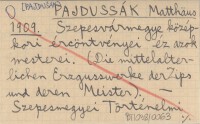 [PAJDUSSÁK]
PAJDUSSÁK Matthäus
1909. Szepesvármegye közép-
kori ércöntvényei és azok
mesterei. (Die mittelalter-
lichen Erzgusswerke der Zips
und deren Meister). —
Szepesmegyei Történelmi